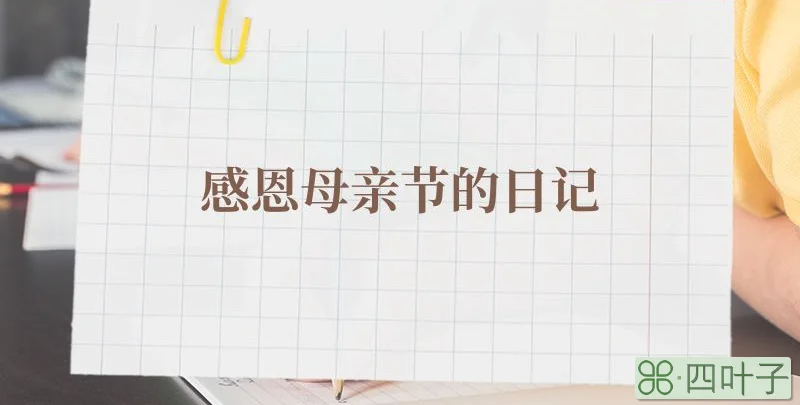 感恩母亲节的日记
四叶子